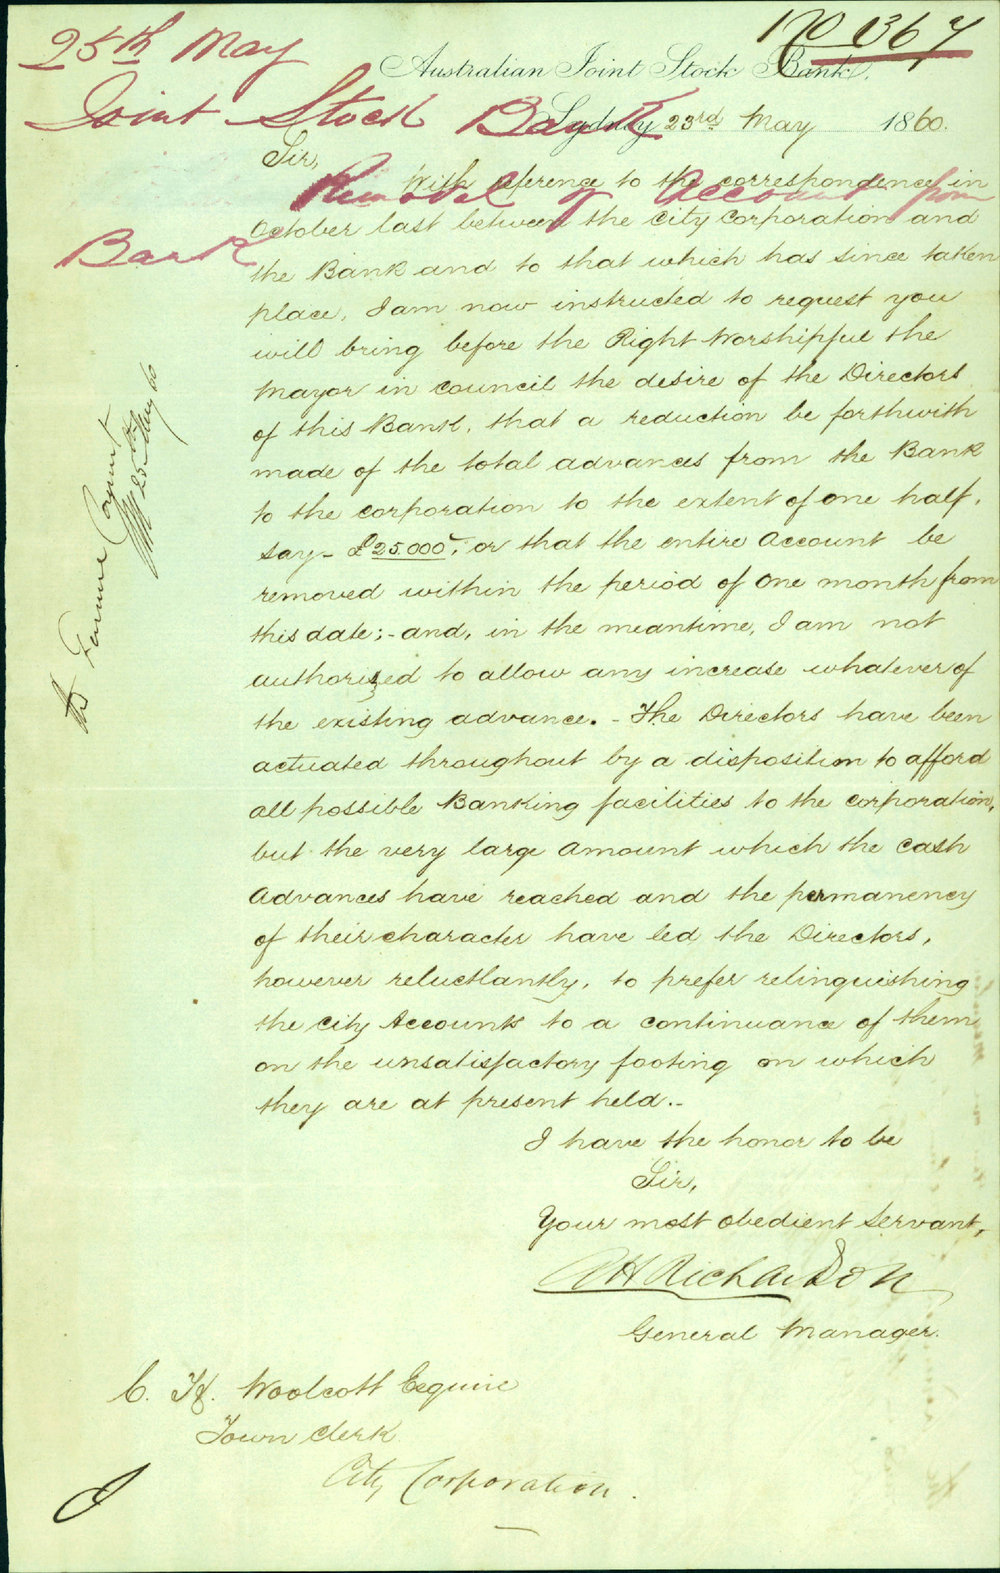 25th May
No 1367
Australian Joint Stock Bank.
Joint Stock Bank
Sydney 23rd May 1860.
Sir,
Removal of Account from
Bank
With reference to the correspondence in
October last between the City Corporation and
the Bank and to that which has since taken
place, I am now instructed to request you
will bring before the Right Worshipful the
Mayor in Council the desire of the Directors
of this Bank, that a reduction be forthwith
made of the total advances from the Bank
to the Corporation to the extent of one half,
say - £25.000, or that the entire Account be
removed within the period of one month from
this date; - and, in the meantime, I am not
authorized to allow any increase whatever of
the existing advance. - The Directors have been
actuated throughout by a disposition to afford
all possible Banking facilities to the Corporation,
but the very large amount which the Cash
Advances have reached and the permanency
of their character have led the Directors,
however reluctlantly, to prefer relinquishing
the City Accounts to a continuance of them
on the unsatisfactory footing on which
they are at present held. -
I have the honor to be
Sir,
Your most obedient Servant,
Richardson
General Manager.
C. H. Woolcott Esquire
Town Clerk
City Corporation.
25 May 60